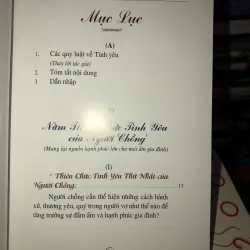 Mục Lục
(A)
1. Các quy luật về Tình yêu
(Thay lời tác giả)
2. Tóm tắt nội dung
3. Dẫn nhập
Năm Tình Yêu
của Người Chồng
(Mang lại nguồn hạnh phúc lớn cho mái ấm gia đình)
(I)
* Thiên Chức Tình Yêu Thứ Nhất của
Người Chồng: 13
Người chồng cần thể hiện những cách hành
xử, thương yêu, quí trọng người vợ như thế nào để
tăng trưởng sự đầm ấm và hạnh phúc gia đình?